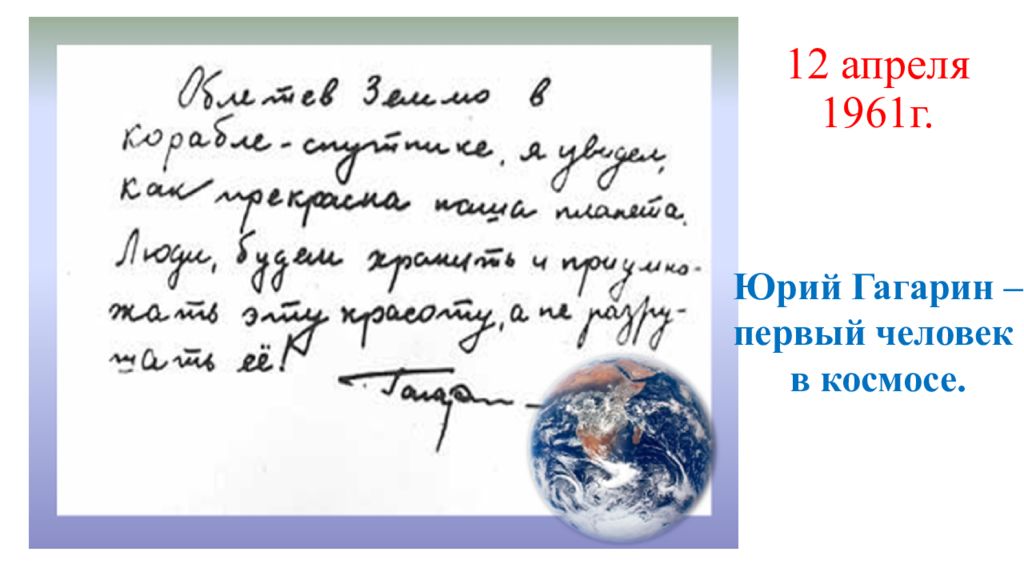 Облетев Землю в
корабле-спутнике, я увидел,
как прекрасна наша планета.
Люди, будем хранить и приумно-
жать эту красоту, а не разру-
шать её!
Гагарин
12 апреля
1961г.
Юрий Гагарин –
первый человек
в космосе.